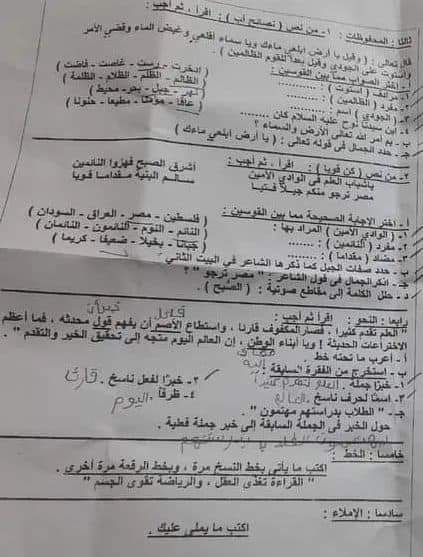 ثالثا : المحفوظات : ١- من نص ( نصائح أب ) : اقرأ ، ثم أجب :
قال تعالى : ( وقيل يا أرض ابلعي ماءك ويا سماء أقلعي وغيض الماء وقضي الأمر
واستوت على الجودي وقيل بعدا للقوم الظالمين ) .
الصواب مما بين القوسين :
( استوت ) : ....... ( ادخرت - رست - غاصت - فاضت )
مفرد ( الظالمين ) : ....... ( الظالم - الظلم - الظلام - الظلمة )
( الجودي ) اسم : ....... ( نهر - جبل - بحر - محيط )
ابن سيدنا نوح عليه السلام كان ....... ( عاقا - مؤمنا - مطيعا - حنونا )
ب- بم أمر الله تعالى الأرض والسماء ؟
ج- حدد الجمال في قوله تعالى : ( يا أرض ابلعي ماءك )
٢- من نص ( كن قويا ) : اقرأ ، ثم أجب :
ياشباب العلم في الوادي الأمين أشرق الصبح فهزوا النائمين
مصر ترجو منكم جيلا فتيا سالم البنية مقداما قويا
أ- اختر الإجابة الصحيحة مما بين القوسين :
١- ( الوادي الأمين ) المراد بها : ( فلسطين - مصر - العراق - السودان )
٢- مفرد ( النائمين ) : ....... ( النائم - النوم - النائمون - النائمان )
٣- مضاد ( مقداما ) : ....... ( جبانا - بخيلا - ضعيفا - كريما )
ب- حدد صفات الجيل كما ذكرها الشاعر في البيت الثاني
ج- اذكر الجمال في قول الشاعر : " مصر ترجو "
د- حلل الكلمة إلى مقاطع صوتية : ( الصبح ) .
رابعا : النحو : اقرأ ثم أجب :
فاعل
" العلم تقدم كثيرا ، فصار المكفوف قارئا ، واستطاع الأصم أن يفهم قول محدثه ، فما أعظم
الاختراعات الحديثة ! ويا أبناء الوطن ، إن العالم اليوم متجه إلى تحقيق الخير والتقدم " .
أ- أعرب ما تحته خط .
مضاف إليه
ب- استخرج من الفقرة السابقة :
١- خبرا جملة . ٢- خبرا لفعل ناسخ . قارئ
٣- اسما لحرف ناسخ . العالم ٤- ظرفا . اليوم
ج- " الطلاب بدراستهم مهتمون " .
حول الخبر في الجملة السابقة إلى خبر جملة فعلية .
خامسا : الخط :
اكتب ما يأتي بخط النسخ مرة ، وبخط الرقعة مرة أخرى .
" القراءة تغذى العقل ، والرياضة تقوى الجسم "
سادسا : الإملاء :
اكتب ما يملى عليك .